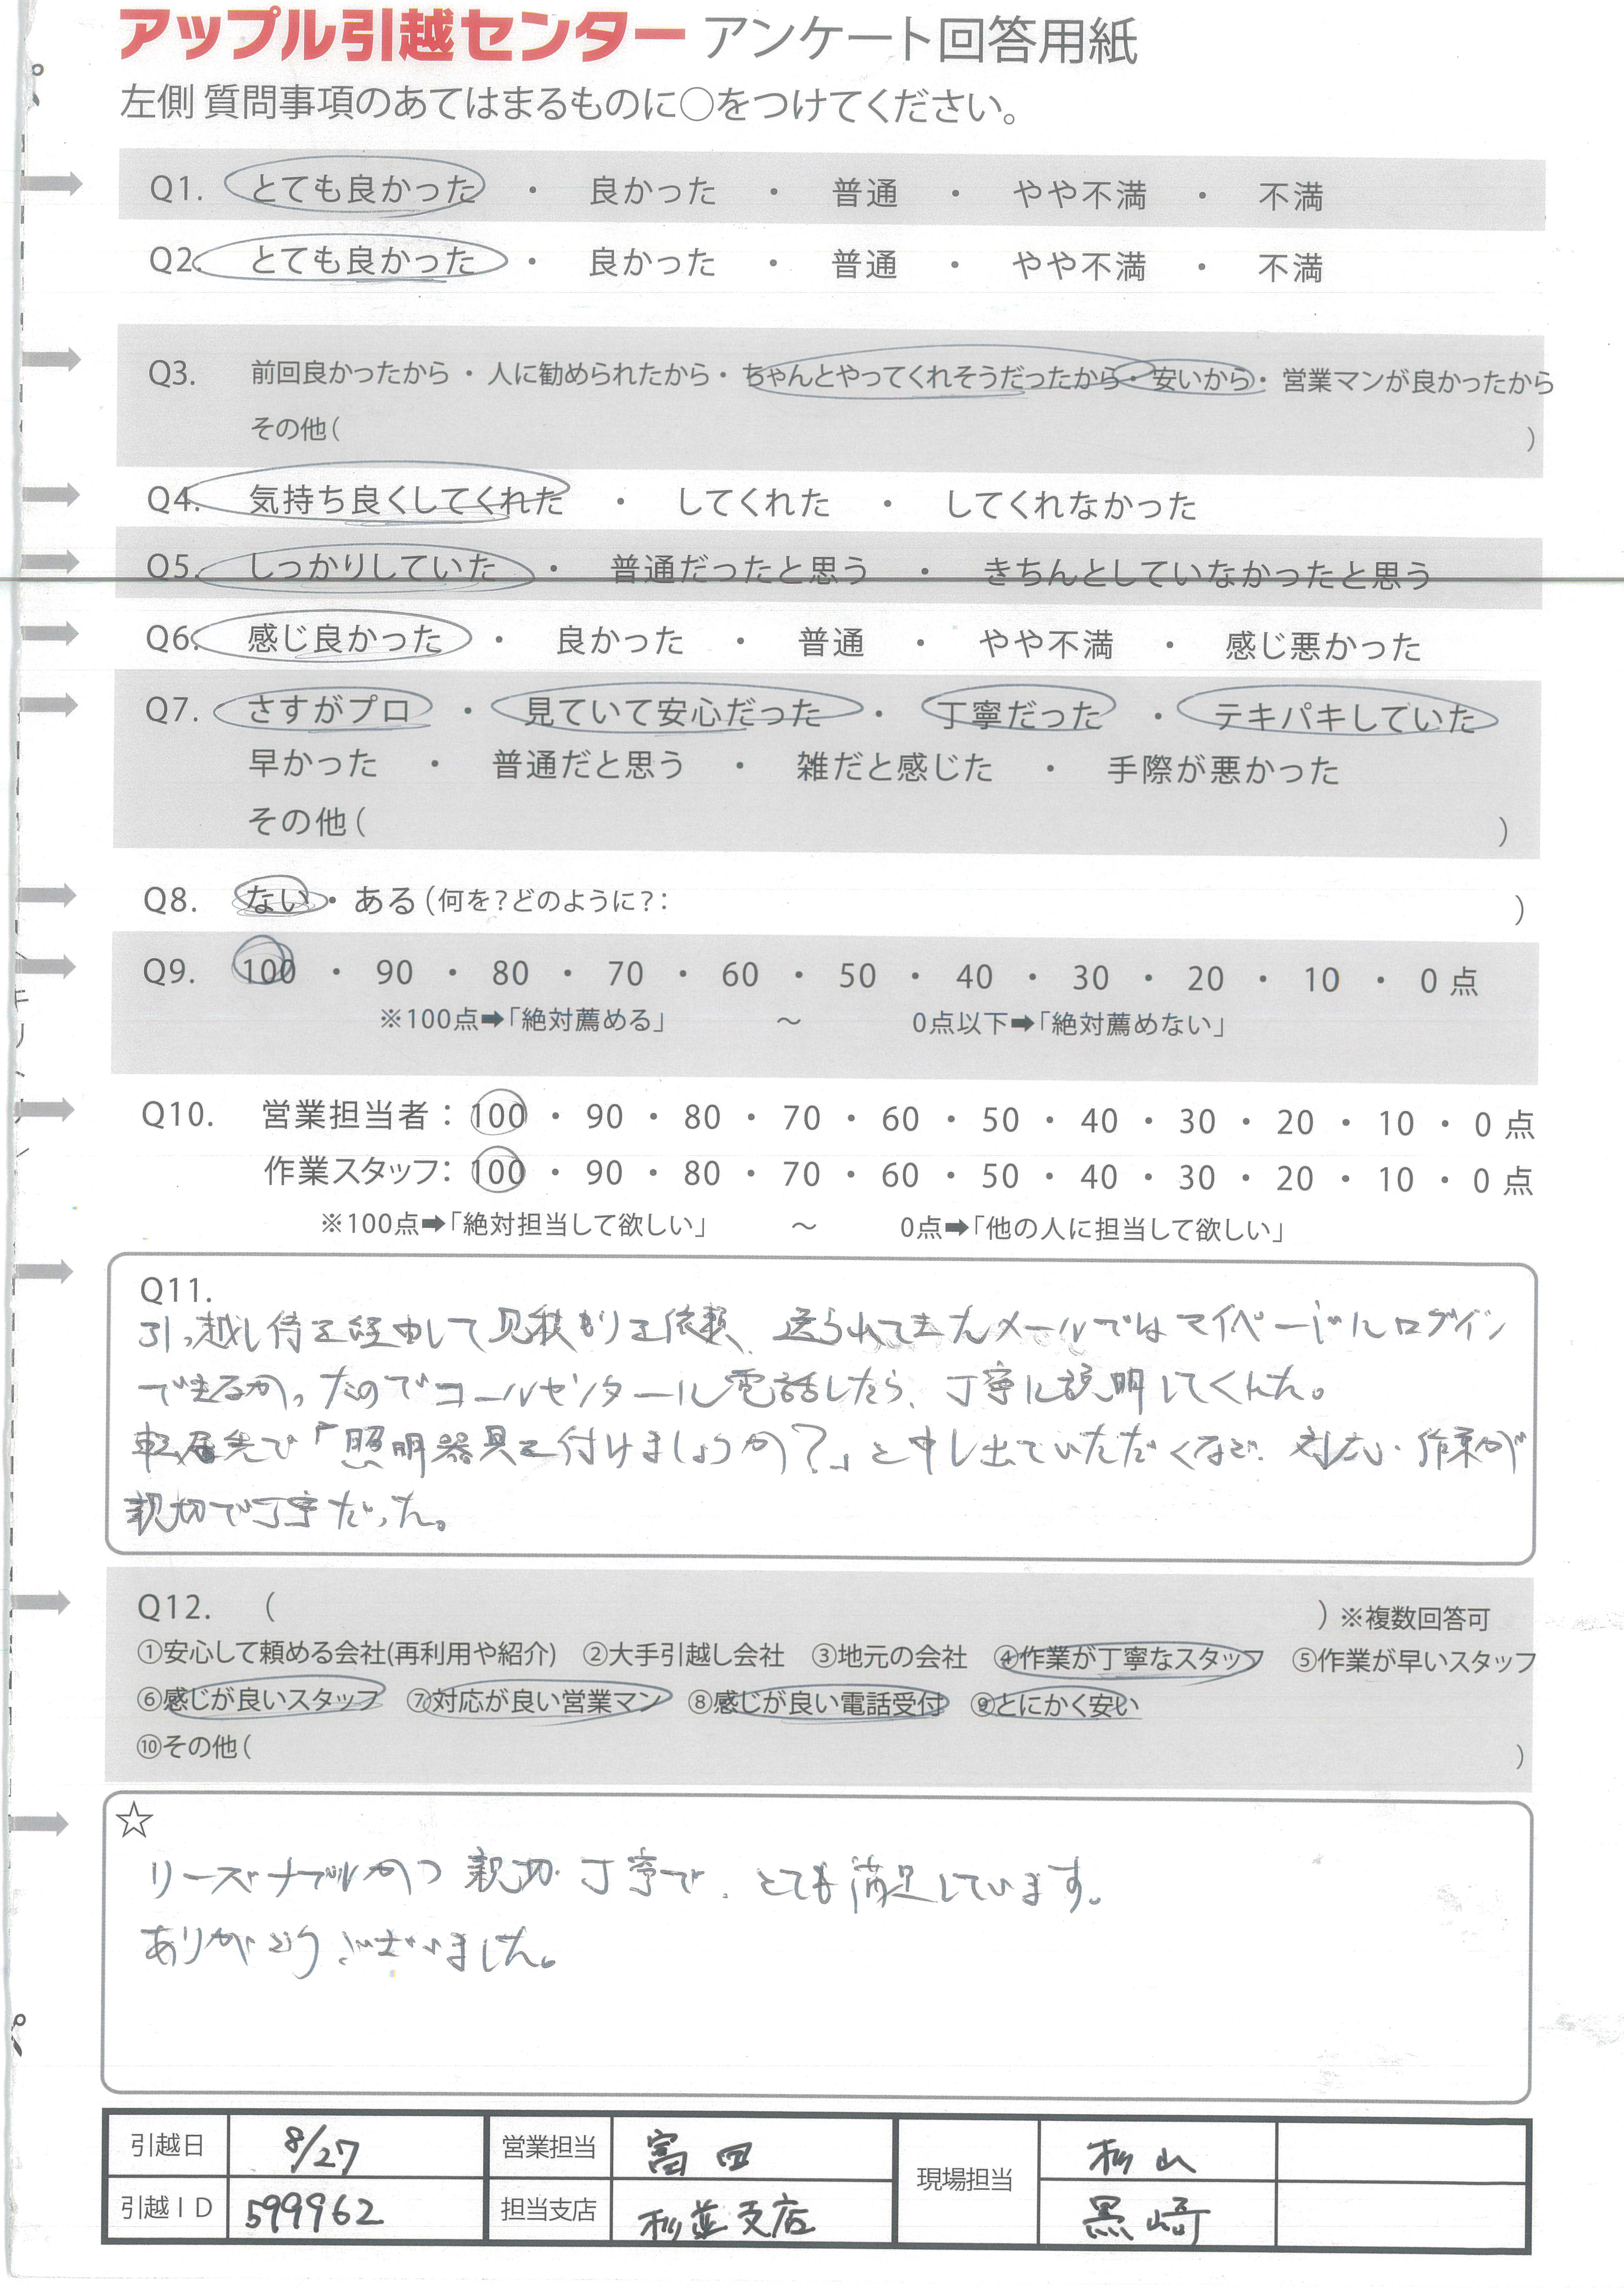 アップル引越センター アンケート回答用紙
左側 質問事項のあてはまるものに○をつけてください。
Q1. とても良かった ・ 良かった ・ 普通 ・ やや不満 ・ 不満
Q2. とても良かった ・ 良かった ・ 普通 ・ やや不満 ・ 不満
Q3. 前回良かったから ・ 人に勧められたから ・ ちゃんとやってくれそうだったから ・ 安いから ・ 営業マンが良かったから
その他( )
Q4. 気持ち良くしてくれた ・ してくれた ・ してくれなかった
Q5. しっかりしていた ・ 普通だったと思う ・ きちんとしていなかったと思う
Q6. 感じ良かった ・ 良かった ・ 普通 ・ やや不満 ・ 感じ悪かった
Q7. さすがプロ ・ 見ていて安心だった ・ 丁寧だった ・ テキパキしていた
早かった ・ 普通だと思う ・ 雑だと感じた ・ 手際が悪かった
その他( )
Q8. ない ・ ある (何を?どのように?: )
Q9. 100 ・ 90 ・ 80 ・ 70 ・ 60 ・ 50 ・ 40 ・ 30 ・ 20 ・ 10 ・ 0 点
※100点➡「絶対薦める」 ～ 0点以下➡「絶対薦めない」
Q10. 営業担当者：100 ・ 90 ・ 80 ・ 70 ・ 60 ・ 50 ・ 40 ・ 30 ・ 20 ・ 10 ・ 0 点
作業スタッフ：100 ・ 90 ・ 80 ・ 70 ・ 60 ・ 50 ・ 40 ・ 30 ・ 20 ・ 10 ・ 0 点
※100点➡「絶対担当して欲しい」 ～ 0点➡「他の人に担当して欲しい」
Q11.
引っ越し侍を経由して見積もりを依頼、送られてきたメールではマイページにログイン
できなかったのでコールセンターに電話したら、丁寧に説明してくれた。
転居先で「照明器具を付けましょうか？」と申し出ていただくなど、対応・作業が
親切で丁寧だった。
Q12. ( ) ※複数回答可
①安心して頼める会社(再利用や紹介) ②大手引越し会社 ③地元の会社 ④作業が丁寧なスタッフ ⑤作業が早いスタッフ
⑥感じが良いスタッフ ⑦対応が良い営業マン ⑧感じが良い電話受付 ⑨とにかく安い
⑩その他( )
☆
リーズナブルかつ親切・丁寧で、とても満足しています。
ありがとうございました。
引越日 8/27 営業担当 富田 現場担当 杉山
引越ID 599962 担当支店 杉並支店 黒崎